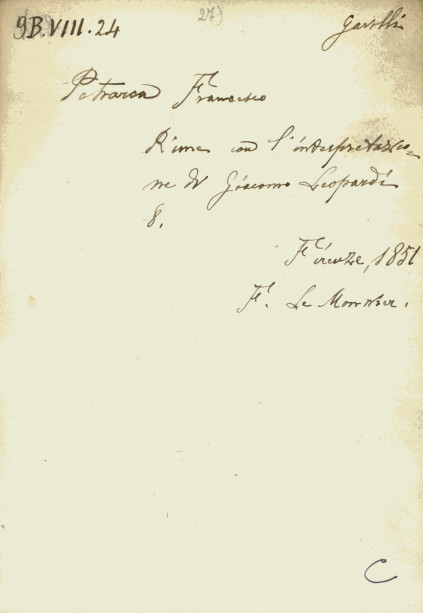 9B.VIII.24
27)
Petrarca Francesco
Rime con l'interpretazio=
ne di Giacomo Leopardi
8.
Firenze, 1851
F. Le Monnier.
C